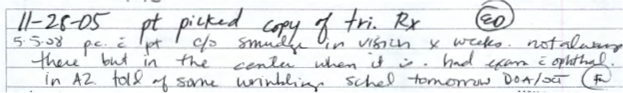 11-28-05 pt picked copy of tri. Rx EO
5-5-08 p.c. c̄ pt c/o smudge in vision x weeks. not always
there but in the center when it is. had exam c̄ ophthal.
in AZ told of some wrinkling sched tomorrow DOA/